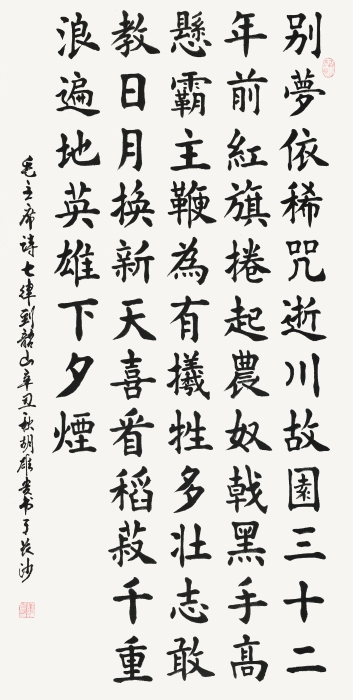 别夢依稀咒逝川故園三十二
年前紅旗捲起農奴戟黑手高
懸霸主鞭為有犧牲多壯志敢
教日月换新天喜看稻菽千重
浪遍地英雄下夕煙
毛主席诗七律到韶山辛丑秋胡雄 书于长沙